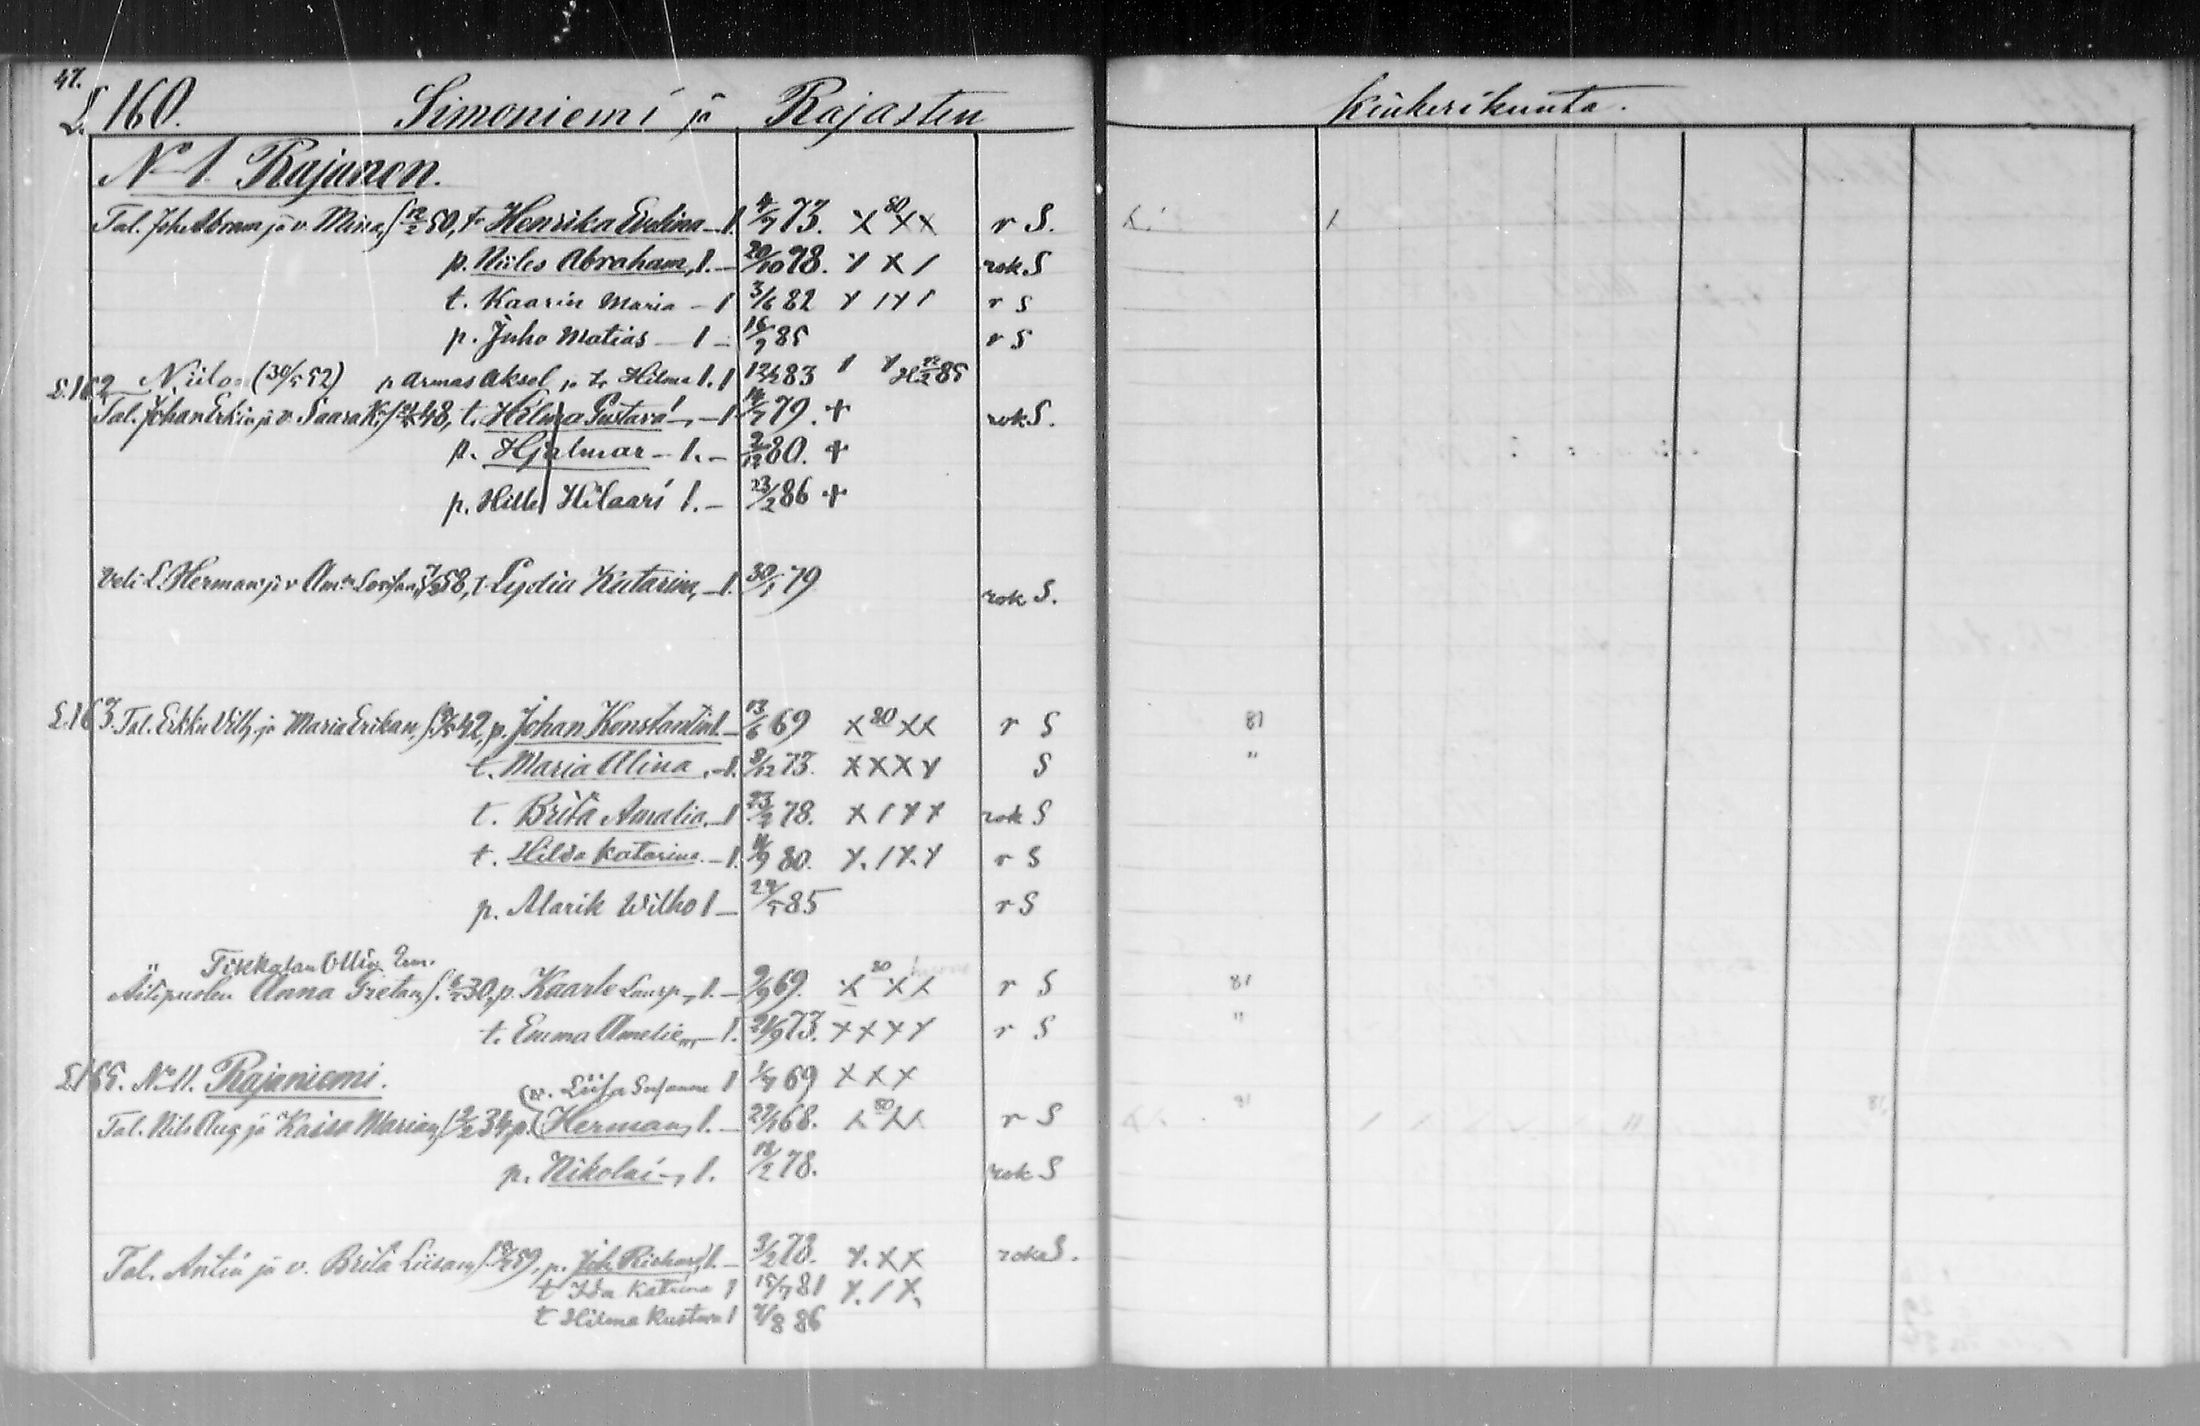 47.
L. 160. Simoniemi ja Rajasten Kinkerikunta.
No 1. Rajanen.
Tal. Joh. Abram ja v. Mina, f. 12/2 50, tr Henrika Evelina – l. 4/7 73. x 80 x x r S.
p. Niiles Abraham, l. – 20/10 78. x x / rok S
t. Kaarin Maria – l 3/6 82 x / x / r S
p. Juho Matias – l – 16/7 85 r S
L. 162 Niilo (30/5 52) p Armas Aksel ja tr Hilma l. l 12/2 83 85
Tal. Johan Erkin ja v. Saara K. 48, t. Hilma Gustava – l 14/7 79. + rok S.
p. Hjalmar – l. – 2/12 80. +
p. Hille Hilaari l. – 23/2 86 +
Veli L. Herman ja v 58, t. Lydia Katarina, – l. 30/1 79 rok S.
L. 163. Tal. Erkki Vilh. ja Maria Erikan, f. 42, p. Johan Konstantin l. – 13/6 69 x 80 x x r S 81
t. Maria Alina, – l. 8/12 73. x x x x S "
t. Brita Amalia, – l 23/2 78. x / x x rok S
t. Hilda Katarina. – l. 11/9 80. x. / x. x r S
p. Alarik Wilho l – 24/5 85 r S
Tikkalan Ollin
Äitipuolen Anna Gretan, f. 30, p. Kaarlo – l. – 9/9 69. x 80 x x r S 81
t. Emma Amelie – l. 21/9 73. x x x x r S "
L. 165. No 11. Rajaniemi. v. Liisa Susanna l 1/7 69 x x x
Tal. Nils Aug ja Kaisa Marian, 34, p. Herman, l. – 27/1 68. x 80 x x r S 81
p. Nikolai –, l. 18/2 78. rok S
Tal. Antin ja v. Brita Liisan, 59, p. Joh. Richard, l. – 3/2 78. x. x x rok S.
t Ida Katrina l 15/7 81 x. / x.
t Hilma Kustava l 7/8 86